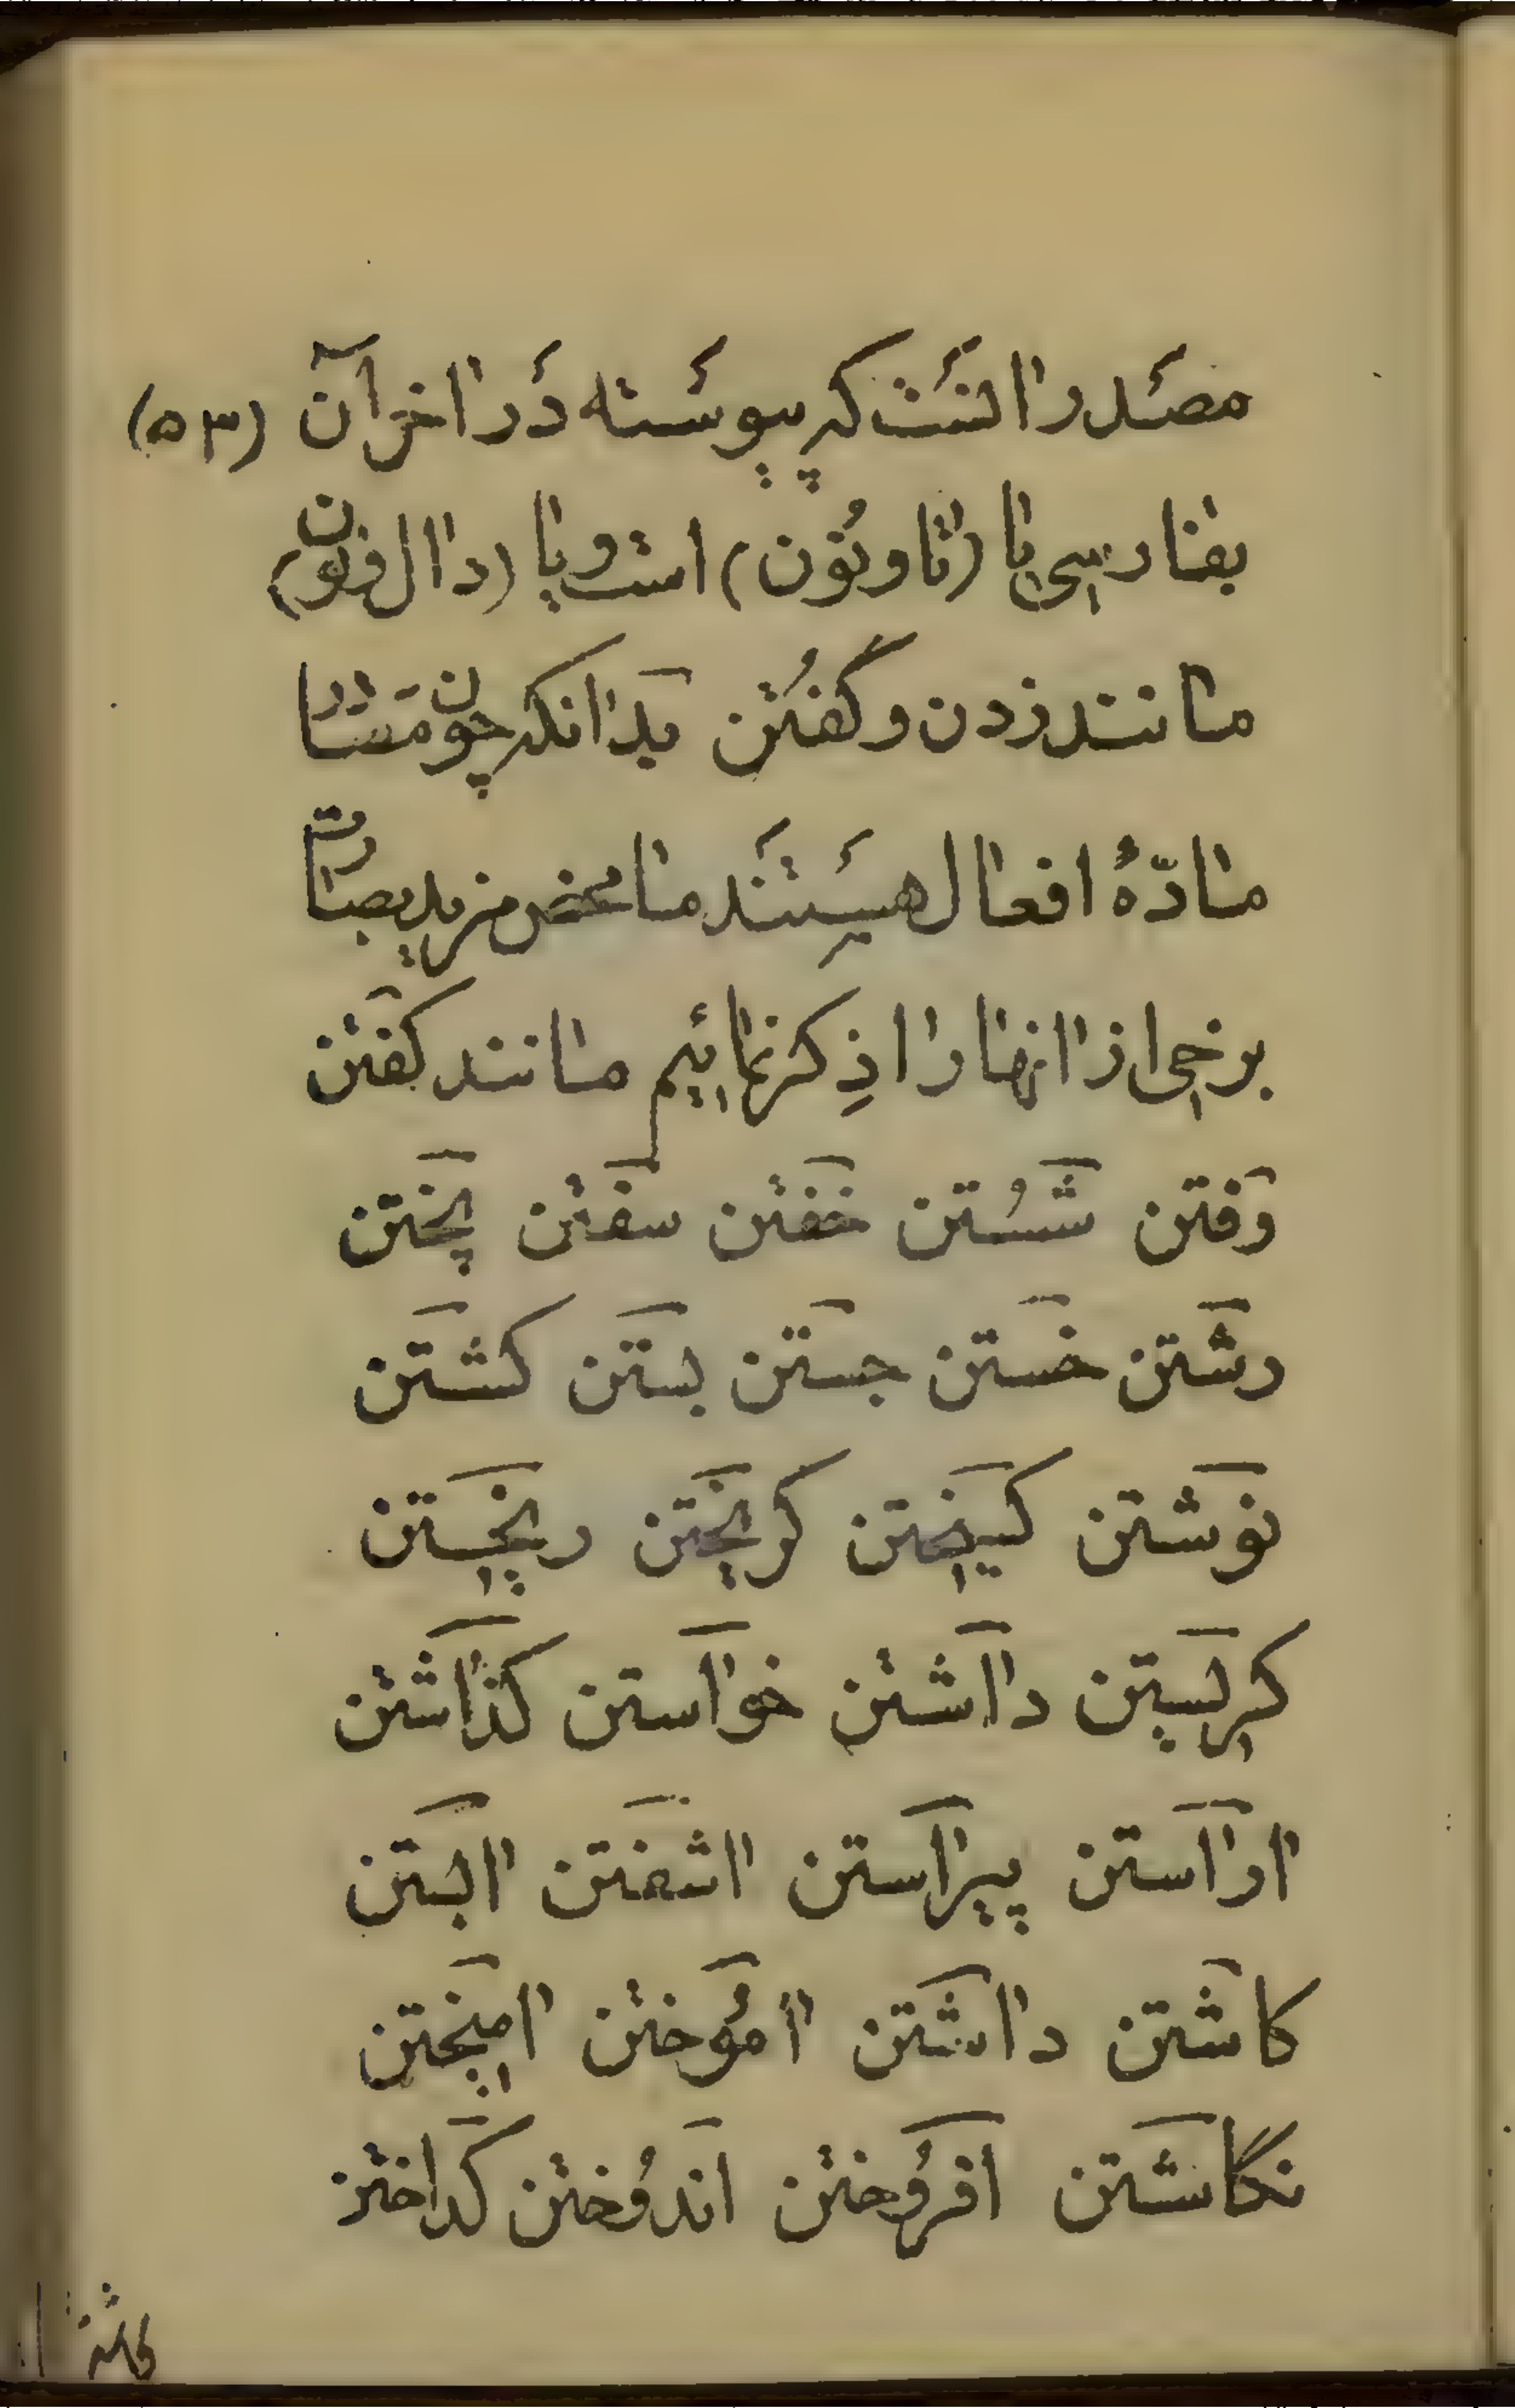 مصدر انست که پیوسته در اخر آن (۵۳)
بفارسی یا (تا و نون) است و یا (دال و نون)
مانند زدن و گفتن بدانکه چون مصادر
مادّهٔ افعال هستند ما محض مزید بصارت
برخی از انها را ذکر نمائیم مانند کفتن
رفتن شستن خفتن سفتن پختن
رشتن خستن جستن بستن کشتن
نوشتن کیختن کریختن ریختن
کریستن داشتن خواستن کذاشتن
اراستن پیراستن اشفتن ابستن
کاشتن داشتن اموختن امیختن
نگاشتن افروختن اندوختن کداختن